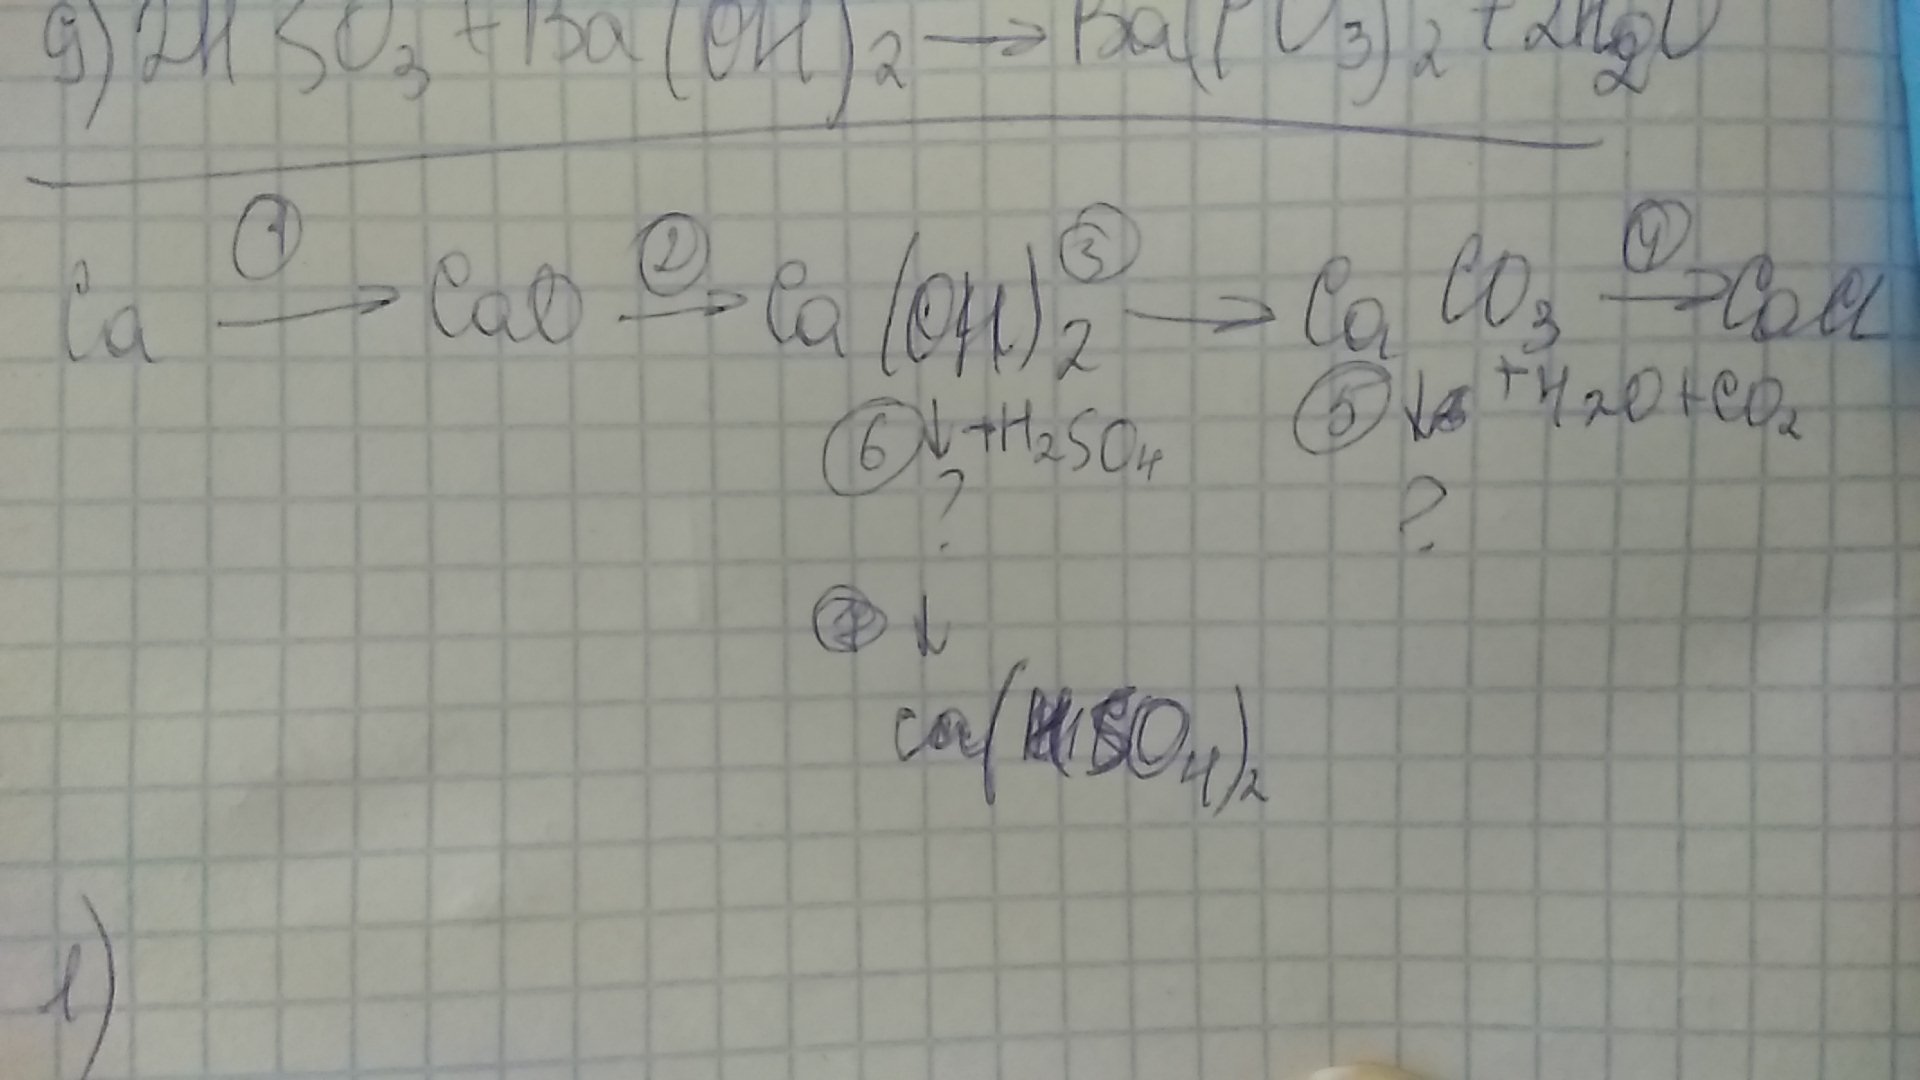 9) 2HSO₃ + Ba(OH)₂ → Ba(PO₃)₂ + 2H₂O
Ca ①→ CaO ②→ Ca(OH)₂ ③→ CaCO₃ ④→ CaCl
⑥ ↓ +H₂SO₄ ⑤ ↓ +H₂O+CO₂
? ?
⑦ ↓
Ca(HSO₄)₂
1)